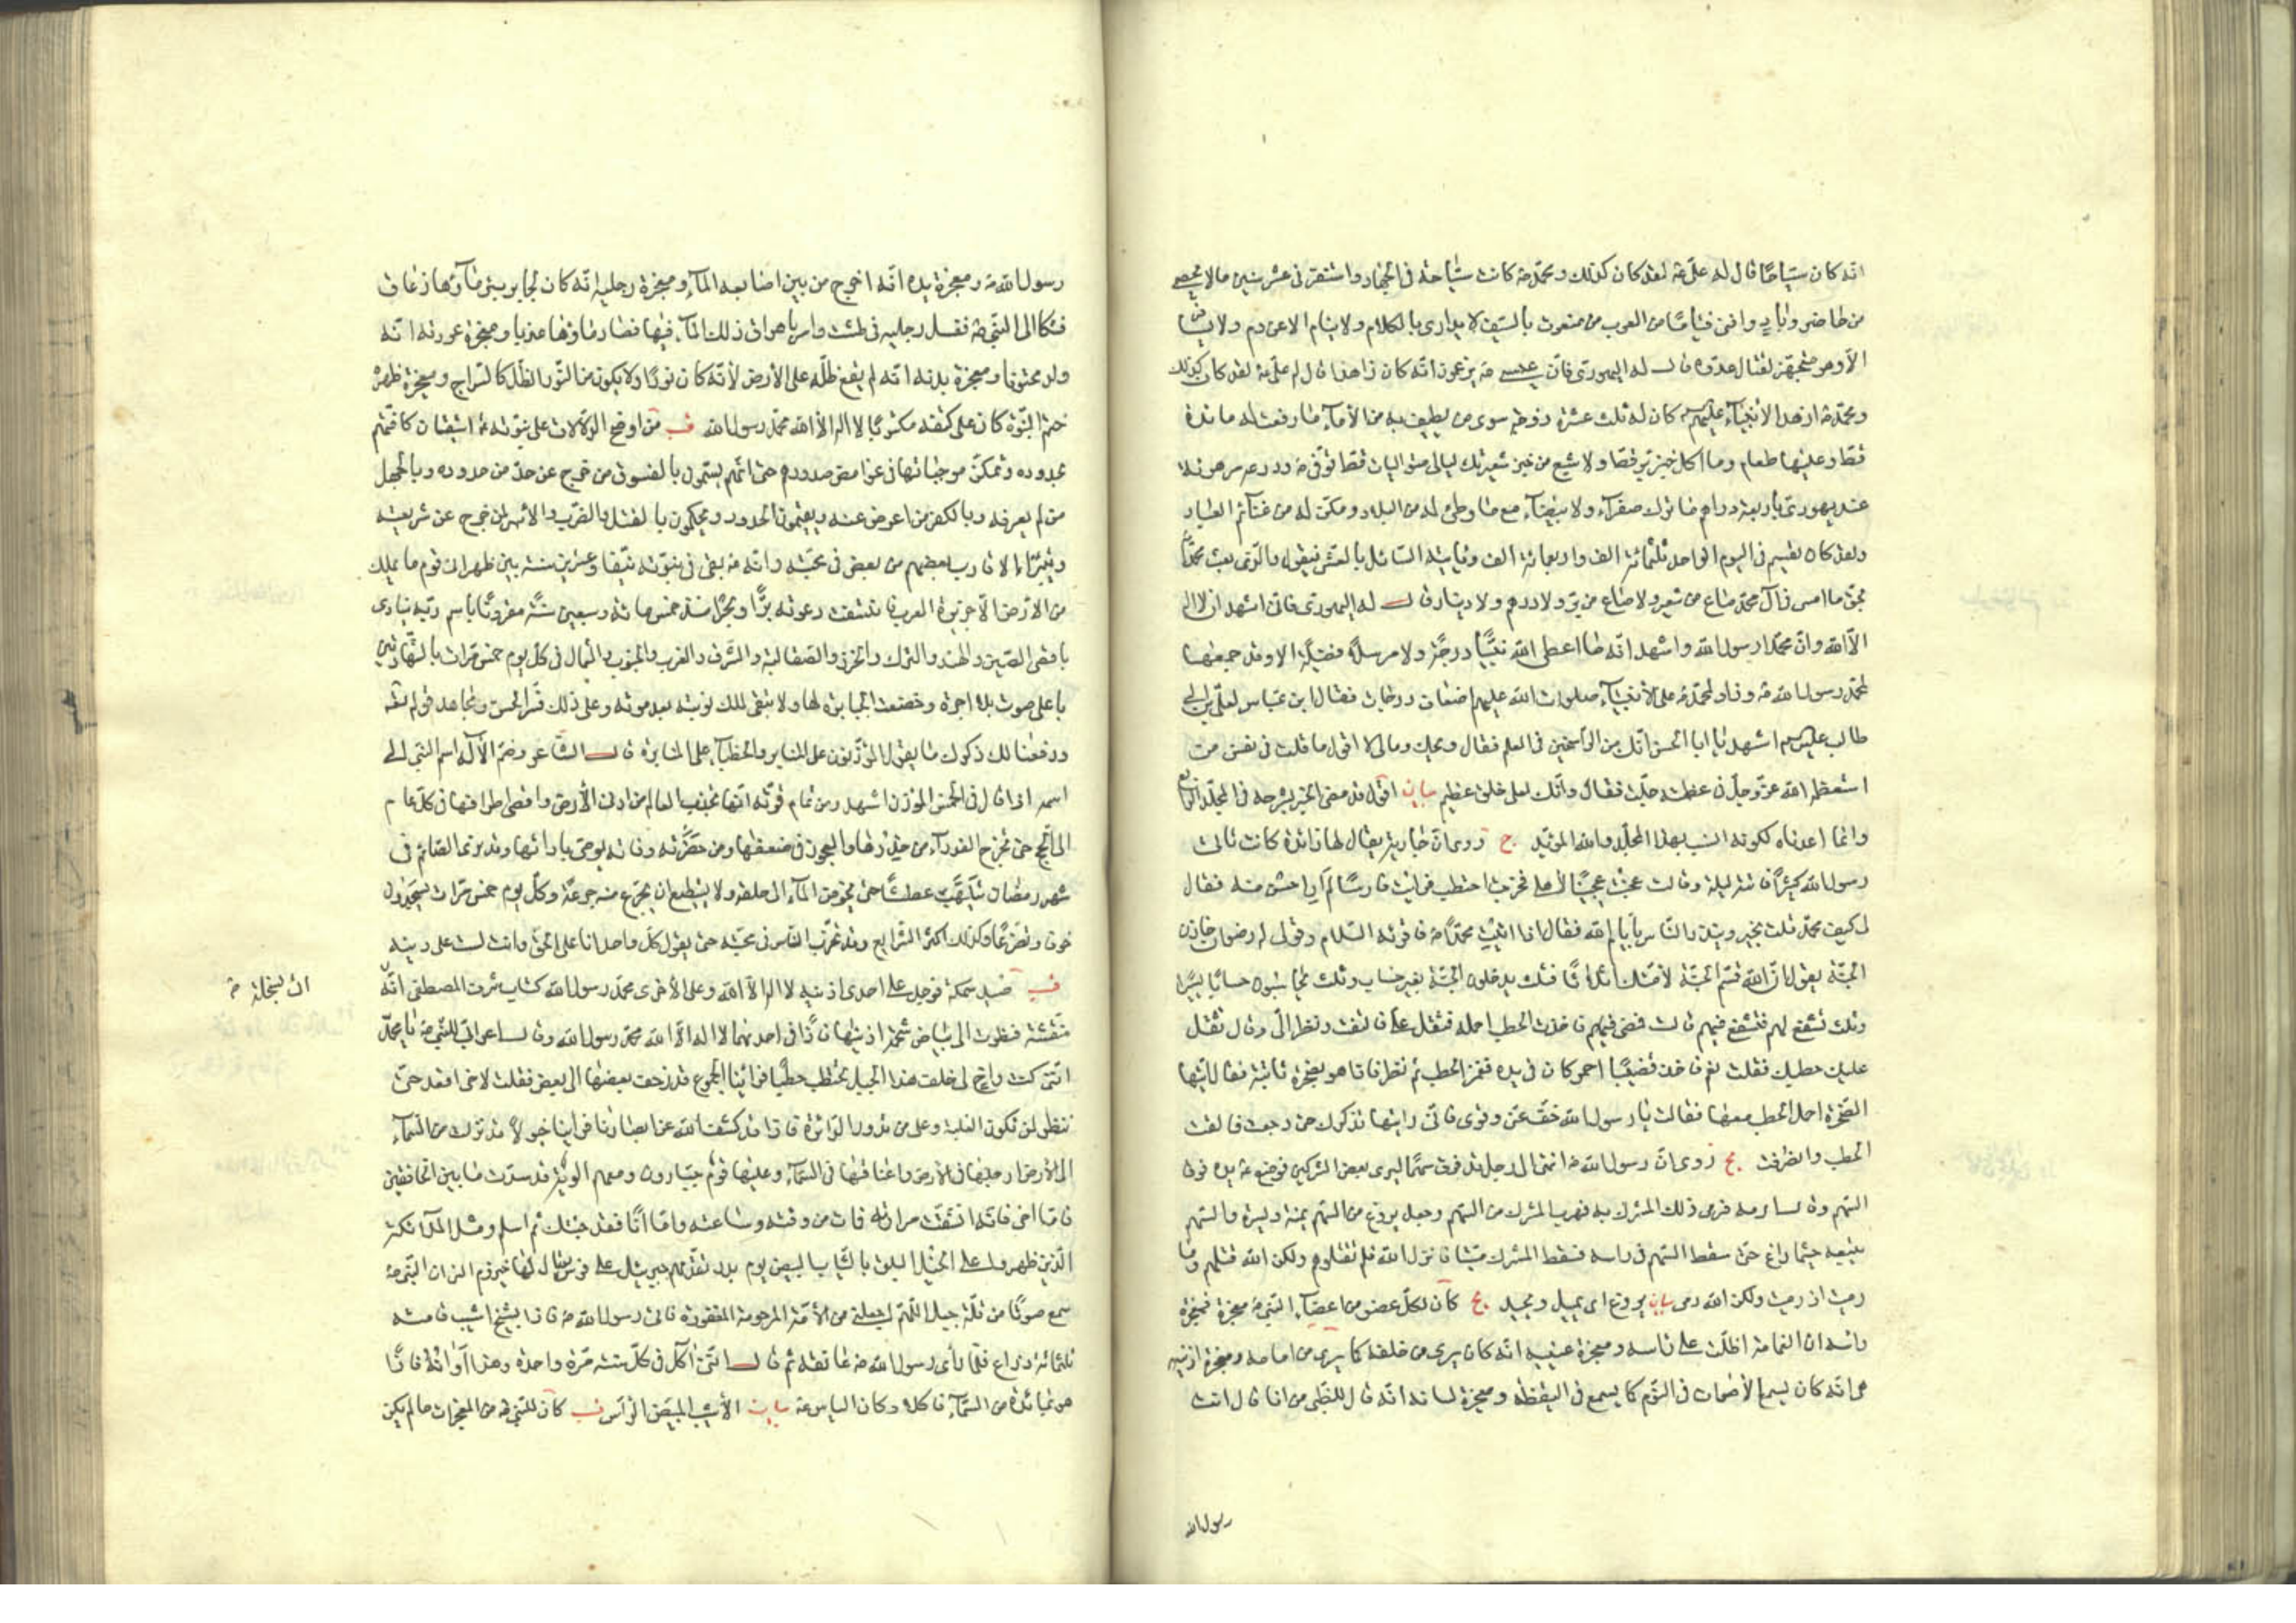 انّه كان سيّاحًا قال له عليّ ع لقد كان كذلك ومحمّد ص كانت سياحته في الجهاد واستنفر في عشر سنين مالا يحصى
من حاضر وباد وافنى فئامًا من العرب من منعوت بالسيف لا يدارى بالكلام ولا ينام الا عن دم ولا يسافر
الّا وهو متجهّز لقتال عدوّه قال له اليهودى فانّ عيسى ع يزعمون انّه كان زاهدًا قال له علىّ ع لقد كان كذلك
ومحمّد ص ازهد الانبياء عليهم السلام كان له ثلث عشرة زوجة سوى من يطيف به من الأماء ما رفعت له مائدة
قطّ وعليها طعام وما اكل خبز برّ قطّ ولا شبع من خبز شعير ثلث ليالى متواليات قطّ توفّى ص ودرعه مرهونة
عند يهودىّ بأربعة دراهم ما ترك صفراء ولا بيضاء مع ما وطى له من البلاد ومكّن له من غنائم العباد
ولقد كان يقسم فى اليوم الواحد ثلثمائة الف واربعمائة الف ويأتيه السّائل بالعشىّ فيقول والّذى بعث محمّدًا
بحقّ ما امسى فى آل محمّد صاع من شعير ولا صاع من برّ ولا درهم ولا دينار قال له اليهودى فانّى اشهد ان لا اله
الّا الله وانّ محمّدًا رسول الله واشهد انّه ما اعطى الله نبيًّا درجة ولا مرسلا فضيلة الا وقد جمعها
لمحمّد رسول الله ص وزاد محمّد ص على الانبياء صلوات الله عليهم اضعاف درجات فقال ابن عبّاس لعلىّ بن ابى
طالب عليه السلام اشهد يا ابا الحسن انّك من الرّاسخين فى العلم فقال ويحك ومالى لا اقول ما قلت فى نفس من
استعظمه الله عزّ وجلّ فى عظمته جلّت فقال وانّك لعلى خلق عظيم بيان اقول قد مضى الخبر بشرحه فى المجلّد الرابع
وانما اعدناه لكونه انسب بهذا المجلّد والله المؤيّد يج روى انّ جارية يقال لها زائدة كانت تأتى
رسول الله كثيرًا فأتته ليلة وقالت عجنت عجينًا لأهلى فخرجت احتطب فرأيت فارسًا لم ار احسن منه فقال
لى كيف محمّد قلت بخير وينذر النّاس بأيّام الله فقال اذا اتيت محمّدًا ص فاقرئه السّلام وقولى له رضوان خازن
الجنّة يقول انّ الله قسّم الجنّة لأمّتك اثلاثًا فثلث يدخلون الجنّة بغير حساب وثلث يحاسبون حسابًا يسيرًا
وثلث تشفع لهم فتشفّع فيهم قالت فمضى فأخذت الحطب احمله فثقل علىّ فالتفت ونظر الىّ وقال ثقل
عليك حطبك فقلت نعم فاخذ قضيبًا احمر كان فى يده فغمز الحطب ثم نظر فاذا هو بصخرة ناتئة فقال ايّتها
الصّخرة احملى الحطب معها فقالت يا رسول الله خفّ عنّى وقرى فانّى رايتها تذكرك حتى رجعت فالقت
الحطب وانصرفت يج روى انّ رسول الله ص انتهى الى رجل قد فوق سهمًا ليرمى بعض المشركين فوضع ص يده فوق
السّهم وقال ارمه فرمى ذلك المشرك به فهرب المشرك من السّهم وجعل يروغ من السّهم يمنة ويسرة والسّهم
يتبعه حيثما راغ حتّى سقط السّهم فى راسه فسقط المشرك ميّتا فانزل الله فلم تقتلوهم ولكن الله قتلهم وما
رميت اذ رميت ولكن الله رمى بيان يروغ اى يميل ويحيد يج كان لكلّ عضو من اعضاء النّبىّ ص معجزة فمعجزة
راسه ان الغمامة اظلّت على راسه ومعجزة عينيه انّه كان يرى من خلفه كما يرى من امامه ومعجزة اذنيه
هى انّه كان يسمع الأصوات فى النّوم كما يسمع فى اليقظة ومعجزة لسانه انّه قال للظّبى من انا قال انت
رسول الله
رسول الله ص ومعجزة يده انّه اخرج من بين اصابعه الماء ومعجزة رجليه انّه كان لجابر بئر ماؤها زعاق
فشكا الى النّبىّ ص فغسل رجليه فى طشت وامر باهراق ذلك الماء فيها فصار ماؤها عذبا ومعجزة عورته انّه
ولد مختونا ومعجزة بدنه انّه لم يقع ظلّه على الأرض لأنّه كان نورًا ولا يكون من النّور الظّلّ كالسّراج ومعجزة ظهره
ختم النّبوّة كان على كتفه مكتوبًا لا اله الّا الله محمّد رسول الله قب من اوضح الدّلالات على نبوّته ع استيقان كافّتهم
بحدوده وتمكّن موجباتها فى غوامض صدورهم حتى انّهم يشتمون بالفسوق من خرج عن حدّ من حدوده وبالجهل
من لم يعرفه وبالكفر من اعرض عنه ويقيمون الحدود ويحكمون بالقتل والضّرب والأسر لمن خرج عن شريعته
ويتبرّأ الأقارب بعضهم من بعض فى محبّته وانّه ص بقى فى نبوّته نيّفا وعشرين سنة بين ظهرانى قوم ما يملك
من الأرض الّا جزيرة العرب فاتّسقت دعوته برًّا وبحرًا منذ خمس مائة وسبعين سنة مقرونًا باسم ربّه ينادى
بأقصى الصّين والهند والترك والخزر والصقالبة والشّرق والغرب والجنوب والشّمال فى كلّ يوم خمس مرّات بالشّهادتين
باعلى صوت بلا اجرة وخضعت الجبابرة لها ولا تبقى لملك نوبته بعد موته وعلى ذلك فسّر الحسن ومجاهد قوله تعالى
ورفعنا لك ذكرك ما يقول المؤذّنون على المنابر والخطباء على المنابر قال الشّاعر وضمّ الاله اسم النّبى الى
اسمه اذا قال فى الخمس المؤذن اشهد ومن تمام قوّته انّها تجذب العالم من ادنى الأرض واقصى اطرافها فى كلّ عام
الى الحجّ حتى تخرج العذراء من خدرها والعجوز فى ضعفها ومن حضرته وفاته يوصى بأدائها وقد نرى الصّائم فى
شهر رمضان يتلهّب عطشًا حتى يخوض الماء الى حلقه ولا يستطيع ان يجرع منه جرعة وكلّ يوم خمس مرّات يسجدون
خوفا وتضرّعًا وكذلك اكثر الشّرايع وقد تحزّب النّاس فى محبّته حتى يقول كلّ واحد انا على الحقّ وانت لست على دينه
قب صيد سمكة فوجد على احدى اذنيه لا اله الّا الله وعلى الأخرى محمّد رسول الله كتاب شرف المصطفى انّه
فنظرت الى بياض شحمة اذنيها فاذا فى احديهما لا اله الّا الله محمّد رسول الله وقال اعرابىّ للنّبىّ ص يا محمّد
انّنى كنت واخ لى خلف هذا الجبل نحتطب حطبًا فراينا الجموع قد زحف بعضها الى بعض فقلت لاخى اقعد حتّى
ننظر لمن تكون الغلبة وعلى من تدور الدّائرة فاذا قد كشف الله عن ابصارنا فراينا خيولًا قد نزلت من السّماء
الى الأرض ارجلها فى الأرض واعناقها فى السّماء وعليها قوم جبّارون ومعهم الوية قد سدّت ما بين الخافقين
فامّا اخى فانّه انشقّت مرارته فمات من وقته وساعته وامّا انا فقد جئتك ثم اسلم ومثل الملائكة
الّذين ظهروا على الخيل البلق بالثّياب البيض يوم بدر يقدّمهم جبريل على فرس يقال لها حيزوم انس ان النّبىّ ص
سمع صوتًا من قلّة جبل اللّهمّ اجعلنى من الأمّة المرحومة المغفورة فاتى رسول الله ص فاذا بشيخ اشيب قامته
ثلثمائة ذراع فلمّا راى رسول الله ص عانقه ثم قال انّنى اكل فى كلّ سنة مرّة واحدة وهذا اوانه فاذا
هو بمائدة من السّماء فاكلا وكان الياس ع بيان الأشيب المبيضّ الرّأس قب كان للنّبىّ ص من المعجزات ما لم يكن